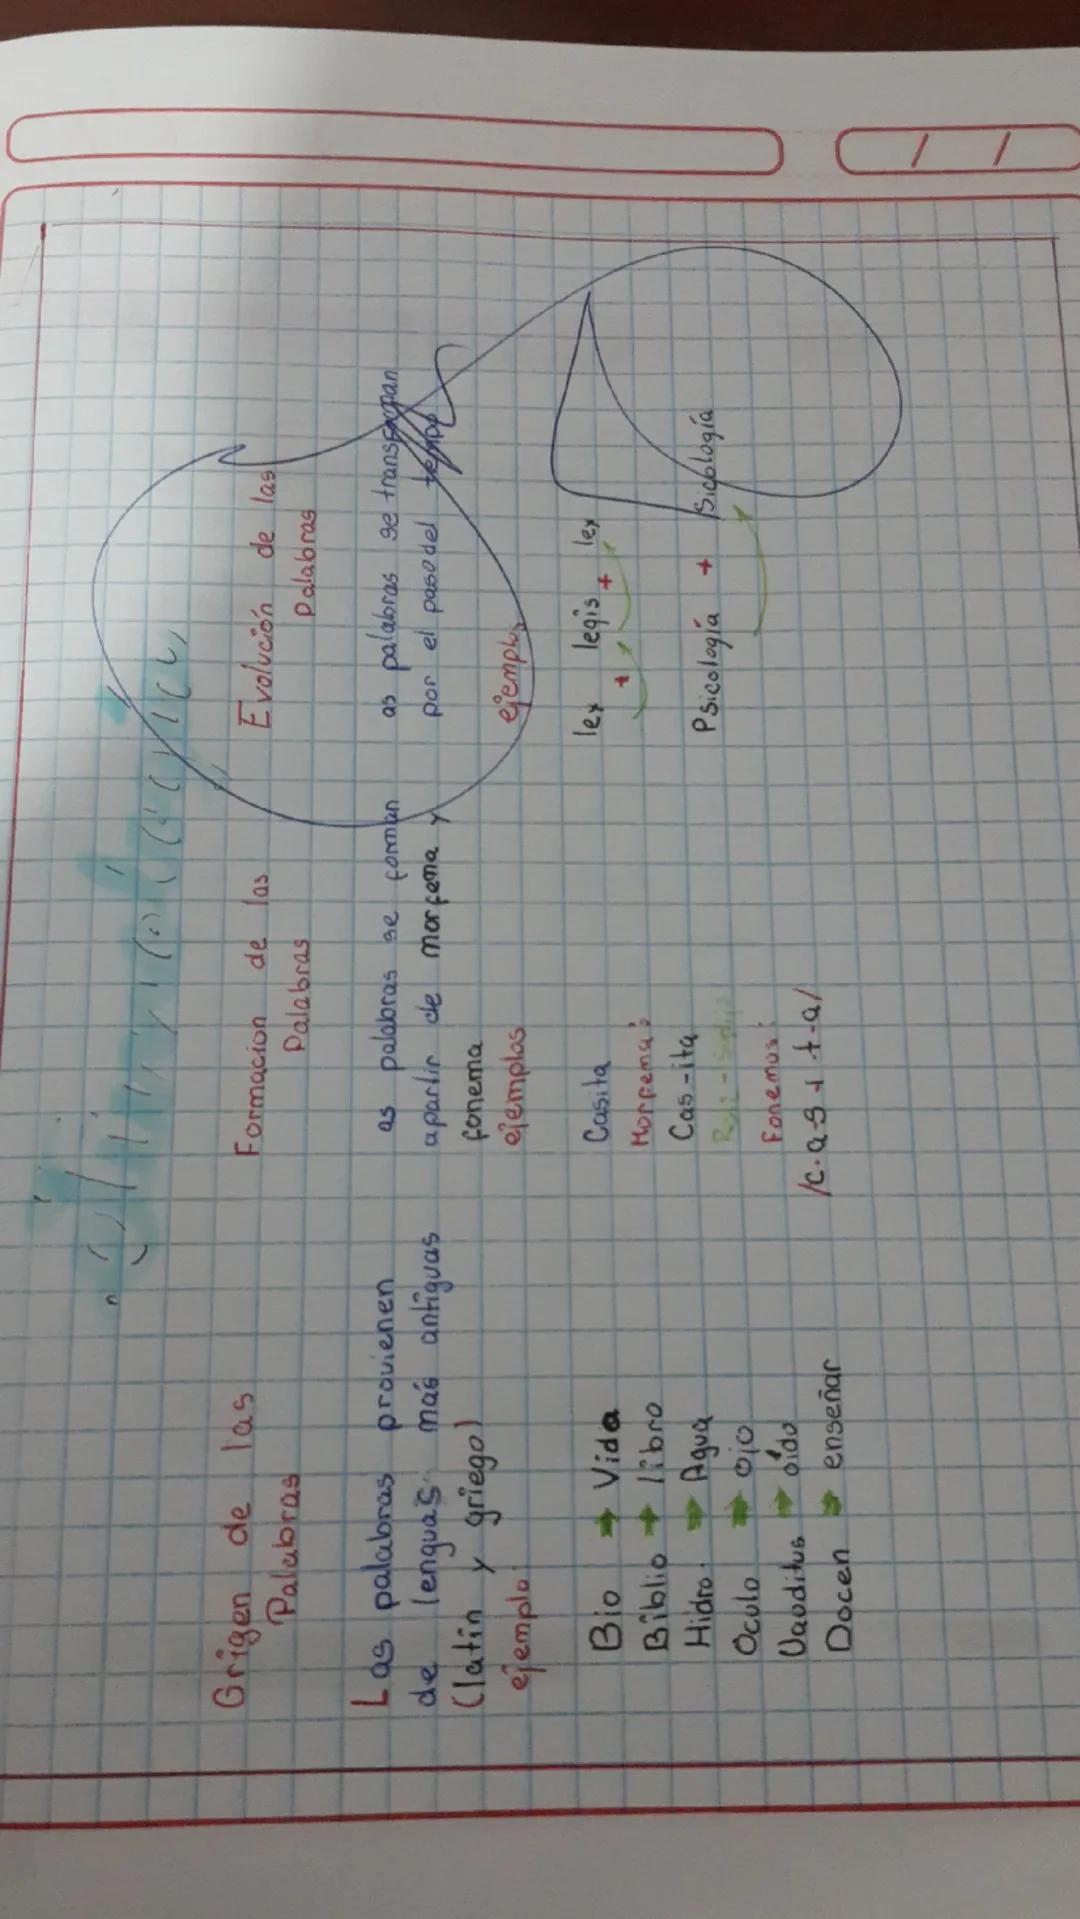 Origen de las
Palabras
Las palabras provienen
de lenguas más antiguas
(latín y griego)
ejemplo:
Bio → Vida
Biblio → libro
Hidro. → Agua
Oculo → ojo
Uauditus → oído
Docen → enseñar
Formacion de las
Palabras
as palabras se forman
apartir de morfema y
fonema
ejemplos
Casita
Morfema:
Cas-ita
Fonemas:
Evolución de las
Palabras
as palabras se
por el paso del tempo
ejemplo,
lex + legis + lex
Psicología + Sicología